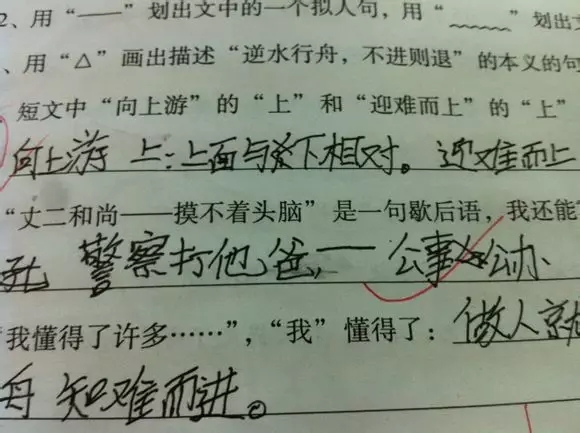 2、用“——”划出文中的一个拟人句，用“﹏﹏”划出文
、用“△”画出描述“逆水行舟，不进则退”的本义的句
短文中“向上游”的“上”和“迎难而上”的“上”
向上游 上：上面与下相对。迎难而上
“丈二和尚——摸不着头脑”是一句歇后语，我还能
警察打他爸，——公事公办
“我懂得了许多……”，“我”懂得了：做人就
舟 知难而进。